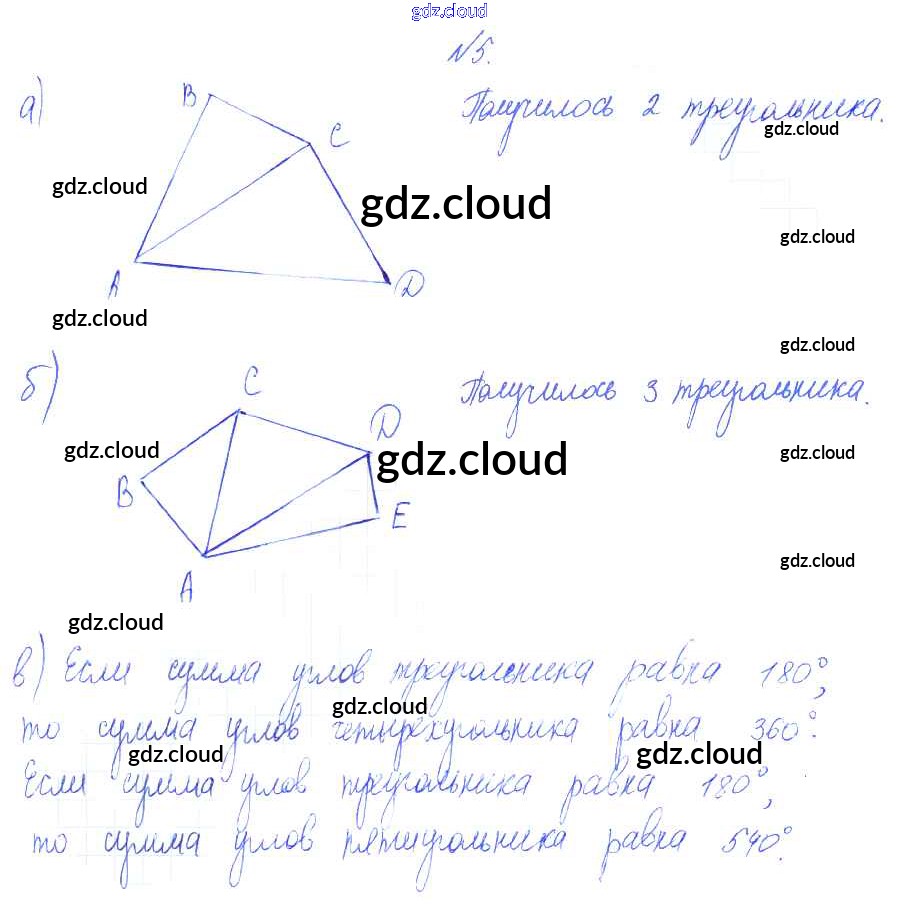 gdz.cloud
№5.
а)
B
C
Получилось 2 треугольника.
gdz.cloud
gdz.cloud
gdz.cloud
gdz.cloud
A
D
gdz.cloud
gdz.cloud
б)
C
Получилось 3 треугольника.
D
gdz.cloud
gdz.cloud
gdz.cloud
B
E
gdz.cloud
A
gdz.cloud
в) Если сумма углов треугольника равна 180°,
gdz.cloud
то сумма углов четырёхугольника равна 360°.
gdz.cloud
gdz.cloud
Если сумма углов треугольника равна 180°,
то сумма углов пятиугольника равна 540°.